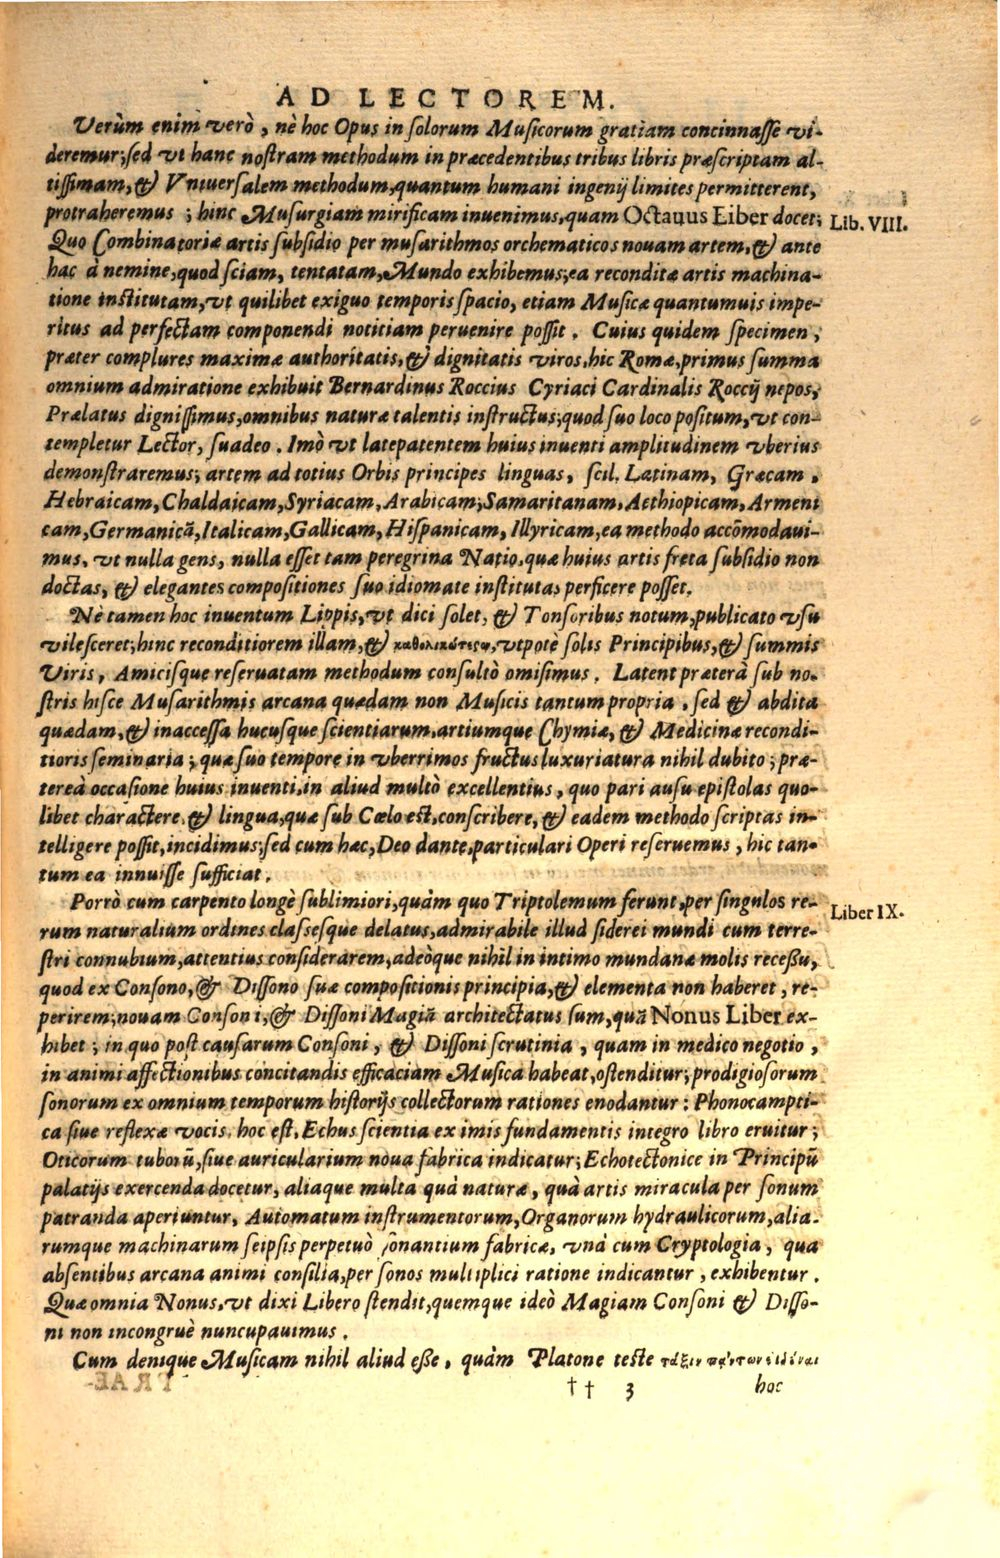 AD LECTOREM.
Verùm enim verò, nè hoc Opus in solorum Musicorum gratiam concinnasse vi-
deremur; sed vt hanc nostram methodum in præcedentibus tribus libris præscriptam al-
tissimam, & Vniuersalem methodum, quantum humani ingenij limites permitterent,
protraheremus; hinc Musurgiam mirificam inuenimus, quam Octauus Liber docet;
Lib. VIII.
Quo Combinatoriæ artis subsidio per musarithmos orchematicos nouam artem, & ante
hac à nemine, quod sciam, tentatam, Mundo exhibemus; ea reconditæ artis machina-
tione institutam, vt quilibet exiguo temporis spacio, etiam Musicæ quantumuis impe-
ritus ad perfectam componendi notitiam peruenire possit. Cuius quidem specimen,
præter complures maximæ authoritatis, & dignitatis viros, hic Romæ, primus summa
omnium admiratione exhibuit Bernardinus Roccius Cyriaci Cardinalis Roccij nepos,
Prælatus dignissimus, omnibus naturæ talentis instructus; quod suo loco positum, vt con-
templetur Lector, suadeo. Imò vt latepatentem huius inuenti amplitudinem vberius
demonstraremus; artem ad totius Orbis principes linguas, scil. Latinam, Græcam,
Hebraicam, Chaldaicam, Syriacam, Arabicam; Samaritanam, Aethiopicam, Armeni
cam, Germanicã, Italicam, Gallicam, Hispanicam, Illyricam, ea methodo accõmodaui-
mus, vt nulla gens, nulla esset tam peregrina Natio, quæ huius artis freta subsidio non
doctas, & elegantes compositiones suo idiomate institutas perficere posset.
Nè tamen hoc inuentum Lippis, vt dici solet, & Tonsoribus notum, publicato vsu
vilesceret; hinc reconditiorem illam, & vtpotè solis Principibus, & summis
Viris, Amicisque reseruatam methodum consultò omisimus. Latent præterà sub no-
stris hisce Musarithmis arcana quædam non Musicis tantum propria, sed & abdita
quædam, & inaccessa hucusque scientiarum, artiumque Chymiæ, & Medicinæ recondi-
tioris seminaria; quæ suo tempore in vberrimos fructus luxuriatura nihil dubito; præ-
tereà occasione huius inuenti, in aliud multò excellentius, quo pari ausu epistolas quo-
libet charactere, & lingua, quæ sub Cœlo est, conscribere, & eadem methodo scriptas in-
telligere possit, incidimus; sed cum hæc, Deo dante, particulari Operi reseruemus, hic tan-
tum ea innuisse sufficiat.
Porrò cum carpento longè sublimiori, quàm quo Triptolemum ferunt, per singulos re-
Liber IX.
rum naturalium ordines classesque delatus, admirabile illud siderei mundi cum terre-
stri connubium, attentius considerarem, adeòque nihil in intimo mundanæ molis recessu,
quod ex Consono, & Dissono suæ compositionis principia, & elementa non haberet, re-
perirem; nouam Consoni, & Dissoni Magiã architectatus sum, quã Nonus Liber ex-
hibet; in quo post causarum Consoni, & Dissoni scrutinia, quam in medico negotio,
in animi affectionibus concitandis efficaciam Musica habeat, ostenditur; prodigiosorum
sonorum ex omnium temporum historijs collectorum rationes enodantur: Phonocampti-
ca siue reflexæ vocis, hoc est, Echus scientia ex imis fundamentis integro libro eruitur;
Oticorum tuborũ, siue auricularium noua fabrica indicatur; Echotectonice in Principũ
palatijs exercenda docetur, aliaque multa quà naturæ, quà artis miracula per sonum
patranda aperiuntur, Automatum instrumentorum, Organorum hydraulicorum, alia-
rumque machinarum seipsis perpetuò sonantium fabricæ, vnà cum Cryptologia, qua
absentibus arcana animi consilia, per sonos multiplici ratione indicantur, exhibentur.
Quæ omnia Nonus, vt dixi Liber ostendit, quemque ideò Magiam Consoni & Disso-
ni non incongruè nuncupauimus.
Cum denique Musicam nihil aliud esse, quàm Platone teste τάξιν πάντων εἰδέναι
†† 3
hoc